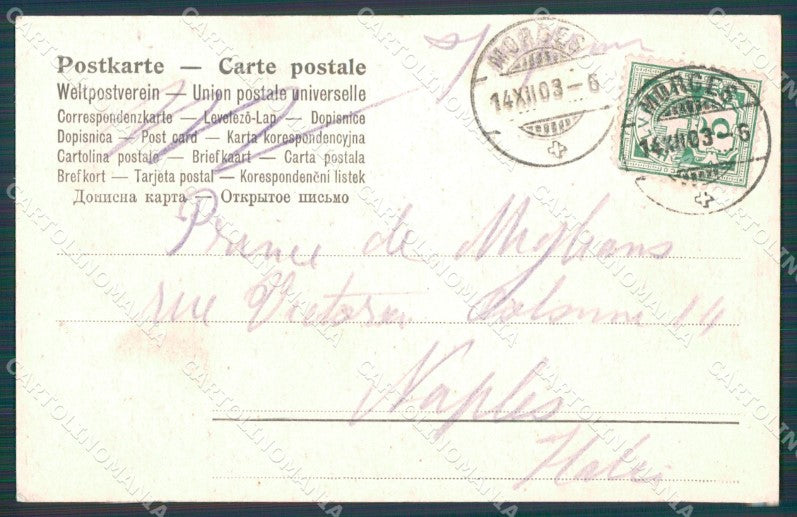 Postkarte — Carte postale
Weltpostverein — Union postale universelle
Correspondenzkarte — Levelező-Lap — Dopisnice
Dopisnica — Post card — Karta korespondencyjna
Cartolina postale — Briefkaart — Carta postala
Brefkort — Tarjeta postal — Korespondenční listek
Дописна карта — Открытое письмо
MORGES
14.XII.03–6
MORGES
14.XII.03–6
5
de
rue Victoria Colonna 14
Naples
Italie
CARTOLINOMANIA